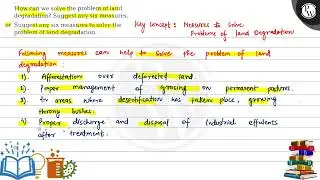 How can we solve the problem of land
degradation? Suggest any six measures.
or Suggest any six measures to solve the
problem of land degradation.
Key concept: Measures to Solve
Problems of land Degradation
Following measures can help to Solve the problem of land
degradation :
1). Afforestation over deforested land.
2). Proper management of grazing on permanent pastures.
3). In areas where desertification has taken place, growing
thorny bushes.
4) Proper discharge and disposal of industrial effluents
after treatment.